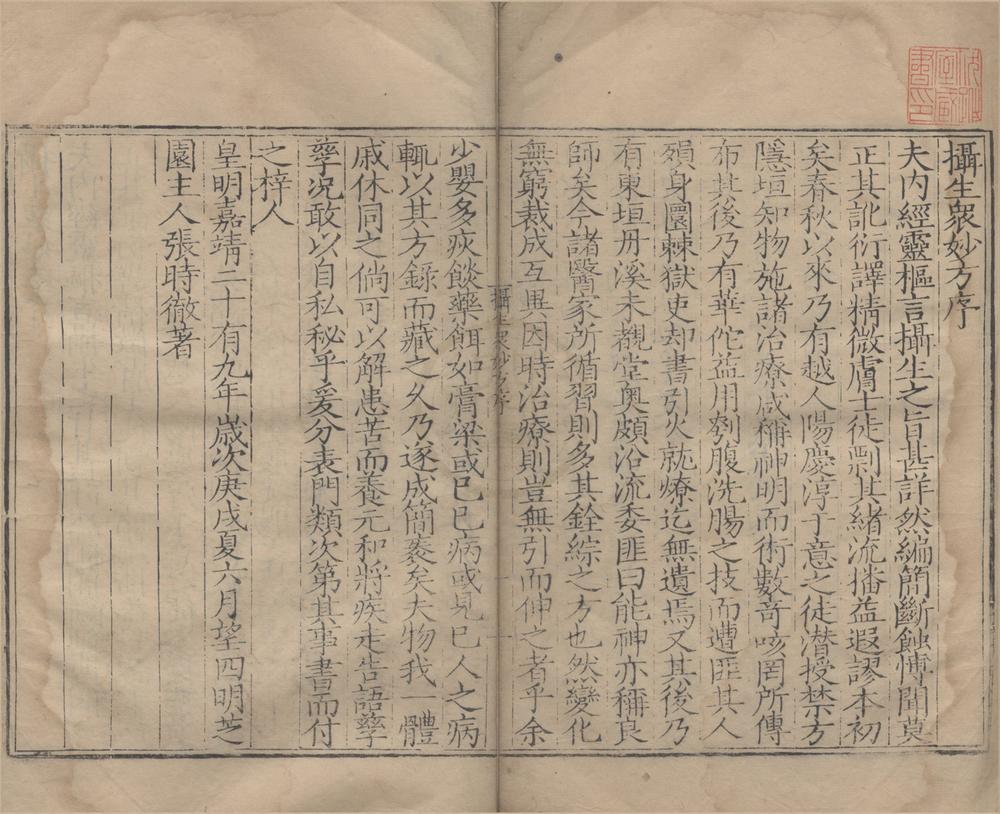 攝生衆妙方序
夫内經靈樞言攝生之旨甚詳然編簡斷蝕愽聞莫
正其訛衍譯精微膚士徒剽其緒流播益遐謬本初
矣春秋以來乃有越人陽慶淳于意之徒潜授禁方
隱垣知物施諸治療咸稱神明而術數竒咳罔所傳
布其後乃有華佗益用刳腹洗腸之技而遭匪其人
殞身圜棘獄吏却書引火就燎迄無遺焉又其後乃
有東垣丹溪未覩堂奥頗沿流委匪曰能神亦稱良
師矣今諸醫家所循習則多其銓綜之方也然變化
無窮裁成互異因時治療則豈無引而伸之者乎余
攝生衆妙方序
少嬰多疢餤藥餌如膏梁或已已病或見已人之病
輒以其方錄而藏之久乃遂成簡袠矣夫物我一體
戚休同之倘可以解患苦而養元和將疾走告語孳
孳况敢以自私秘乎爰分表門類次第其事書而付
之梓人
皇明嘉靖二十有九年歲次庚戌夏六月望四明芝
園主人張時徹著